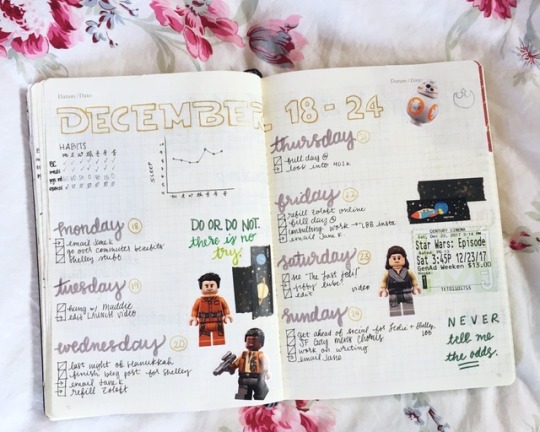 Datum / Date:
DECEMBER
HABITS
SLEEP
monday 18
email Jane K
go over commuter benefits
Shelley stuff
DO OR DO NOT.
there is no
try.
tuesday 19
hang w/ Maddie
edit LAUNCH video
wednesday 20
last night of Hanukkah
finish blog post for Shelley
email Jane K
refill Zoloft
Datum / Date:
18 - 24
thursday 21
full day @
look into 401k
friday 22
refill Zoloft online
full day @
consulting work → LBB insta
email Jane K.
saturday 23
see "The Last Jedi"
edit video
CENTURY CINEMA
Star Wars: Episode
Sat 3:45P 12/23/17
GenAd Weeken $13.00
sunday 24
get ahead of social for + Shelley
work on writing
email Jane
NEVER
tell me
the odds.